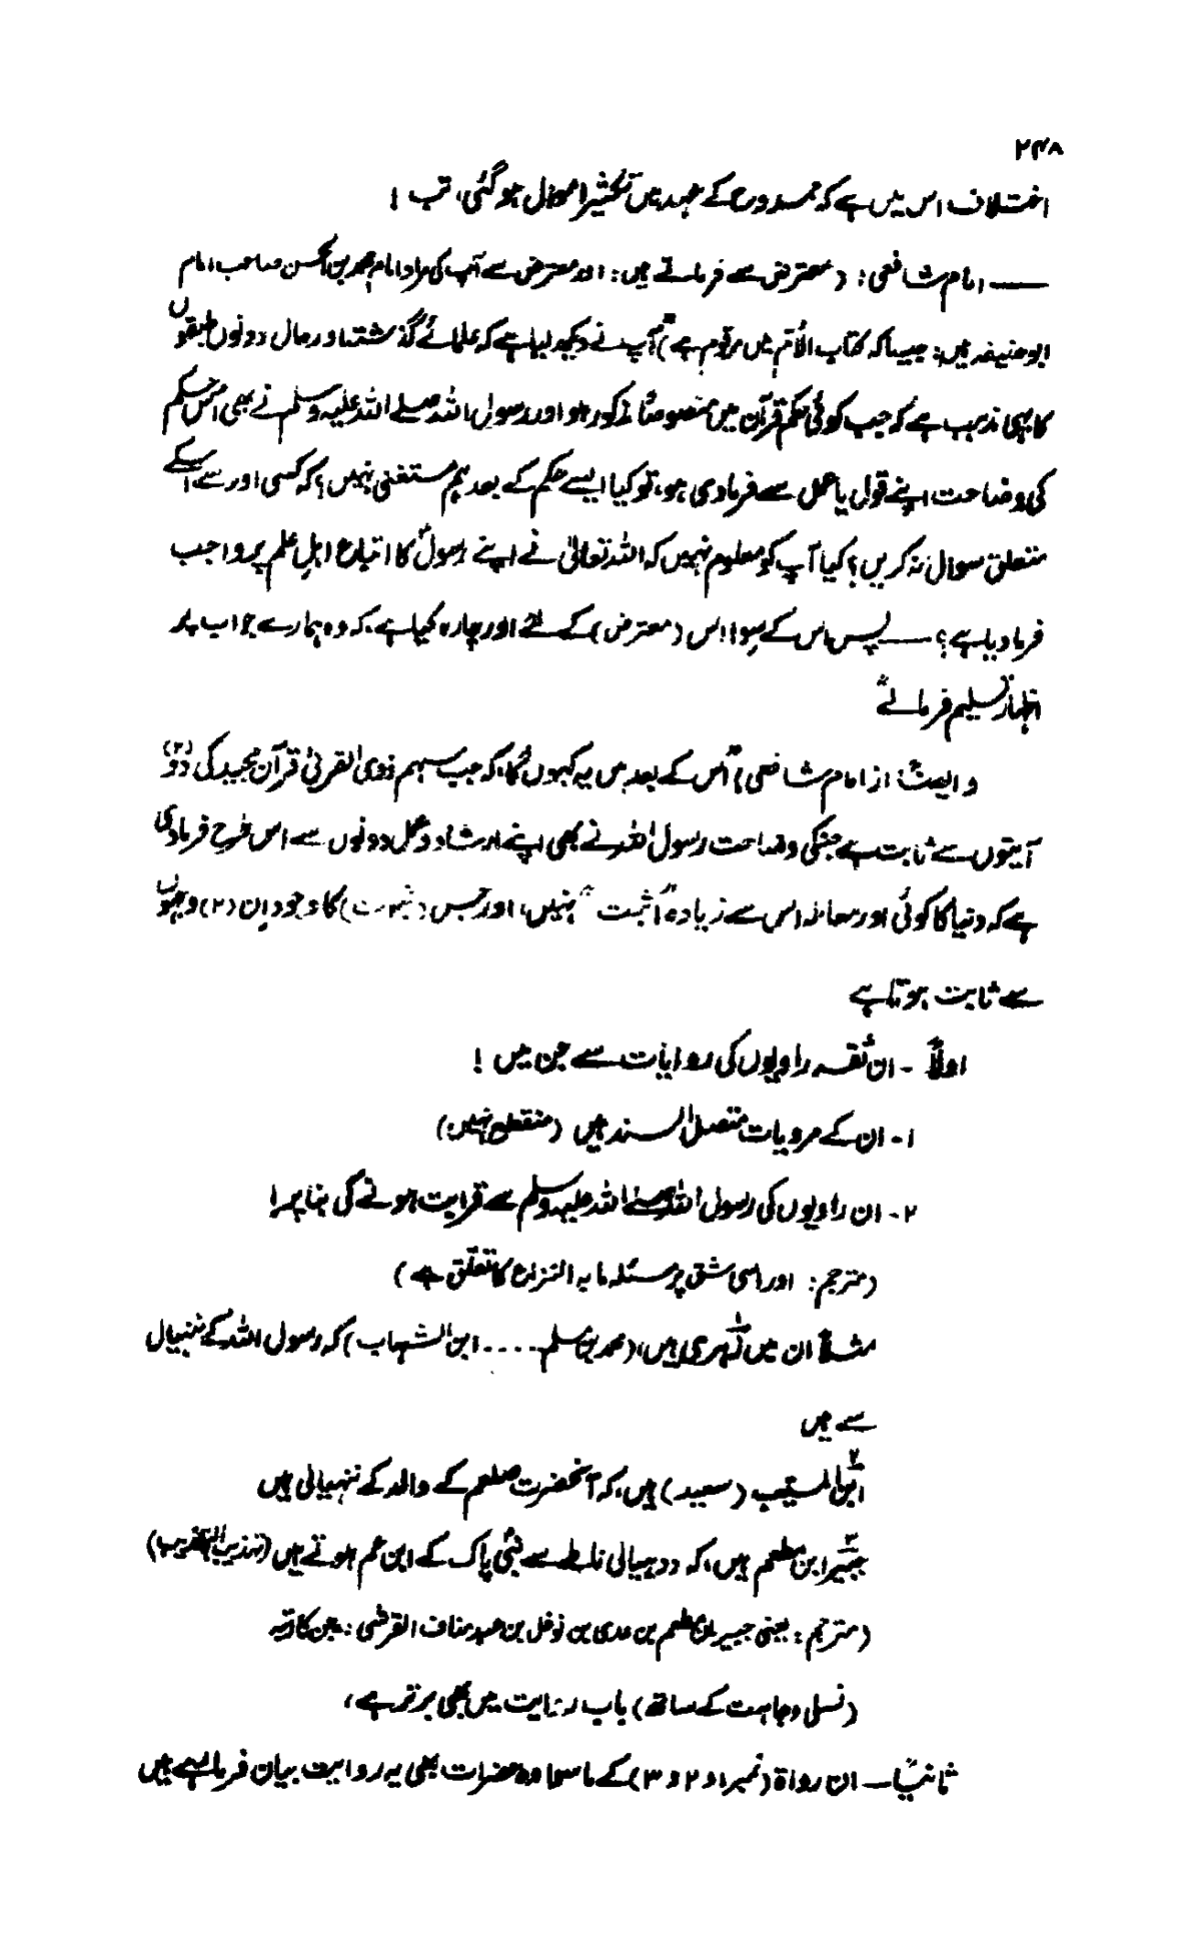 ۲۴۸
اختلاف اس میں ہے کہ ممدوح کے عہد میں تکثیر اموال ہو گئی، تب!
—— امام شافعی: (معترض سے فرماتے ہیں: اور معترض سے آپ کی مراد امام محمد بن الحسن صاحب امام
ابو حنیفہ ہیں: جیسا کہ کتاب الاُم میں مرقوم ہے) "آپ نے دیکھ لیا ہے کہ علمائے گذشتہ اور حال دونوں طبقوں
کا یہی مذہب ہے کہ جب کوئی حکم قرآن میں منصوصاً مذکور ہو اور رسول اللہ صلے اللہ علیہ وسلم نے بھی اس حکم
کی وضاحت اپنے قول یا عمل سے فرما دی ہو، تو کیا ایسے حکم کے بعد ہم مستغنی نہیں؟ کہ کسی اور سے اسکے
متعلق سوال نہ کریں؟ کیا آپ کو معلوم نہیں کہ اللہ تعالیٰ نے اپنے رسولؐ کا اتباع اہلِ علم پر واجب
فرما دیا ہے؟ —— پس اس کے سوا اس (معترض) کے لئے اور چارہ کیا ہے، کہ وہ ہمارے جواب پر
اظہارِ تسلیم فرمائے"
و ایضاً: از امام شافعی) "اس کے بعد میں یہ کہوں گا، کہ جب سہم ذوی القربیٰ قرآن مجید کی دو (۲)
آیتوں سے ثابت ہے جنکی وضاحت رسول اللہ نے بھی اپنے ارشاد و عمل دونوں سے اس طرح فرما دی
ہے کہ دنیا کا کوئی اور معاملہ اس سے زیادہ "اثبت" نہیں، اور جس ( ) کا وجود اِن (۲) وجہوں
سے ثابت ہوتا ہے
اولاً - ان ثقہ راویوں کی روایات سے جن میں!
۱- ان کے مرویات متصل السند ہیں (منقطع نہیں)
۲- ان راویوں کی رسول اللہ صلے اللہ علیہ وسلم سے قرابت ہونے کی بنا پر!
(مترجم: اور اسی شق پر مسئلہ ما بہ النزاع کا تعلّق ہے)
مثلاً ان میں ۱ زہری ہیں، (محمد بن مسلم .... ابن الشہاب) کہ رسول اللہ کے ننہیال
سے ہیں
۲ ابن المسیب (سعید) ہیں، کہ آنحضرت صلعم کے والد کے ننہیالی ہیں
۳ جبیر ابن مطعم ہیں، کہ ددہیالی ناطے سے نبیؐ پاک کے ابن عم ہوتے ہیں (تہذیب التہذیب)
(مترجم: یعنی جبیر بن مطعم بن عدی بن نوفل بن عبد مناف القرشی: جن کا رتبہ
(نسلی وجاہت کے ساتھ) باب روایت میں بھی برتر ہے،
ثانیاً —— ان رواۃ (نمبر ۱ و ۲ و ۳) کے ماسوا وہ حضرات بھی یہ روایت بیان فرما رہے ہیں